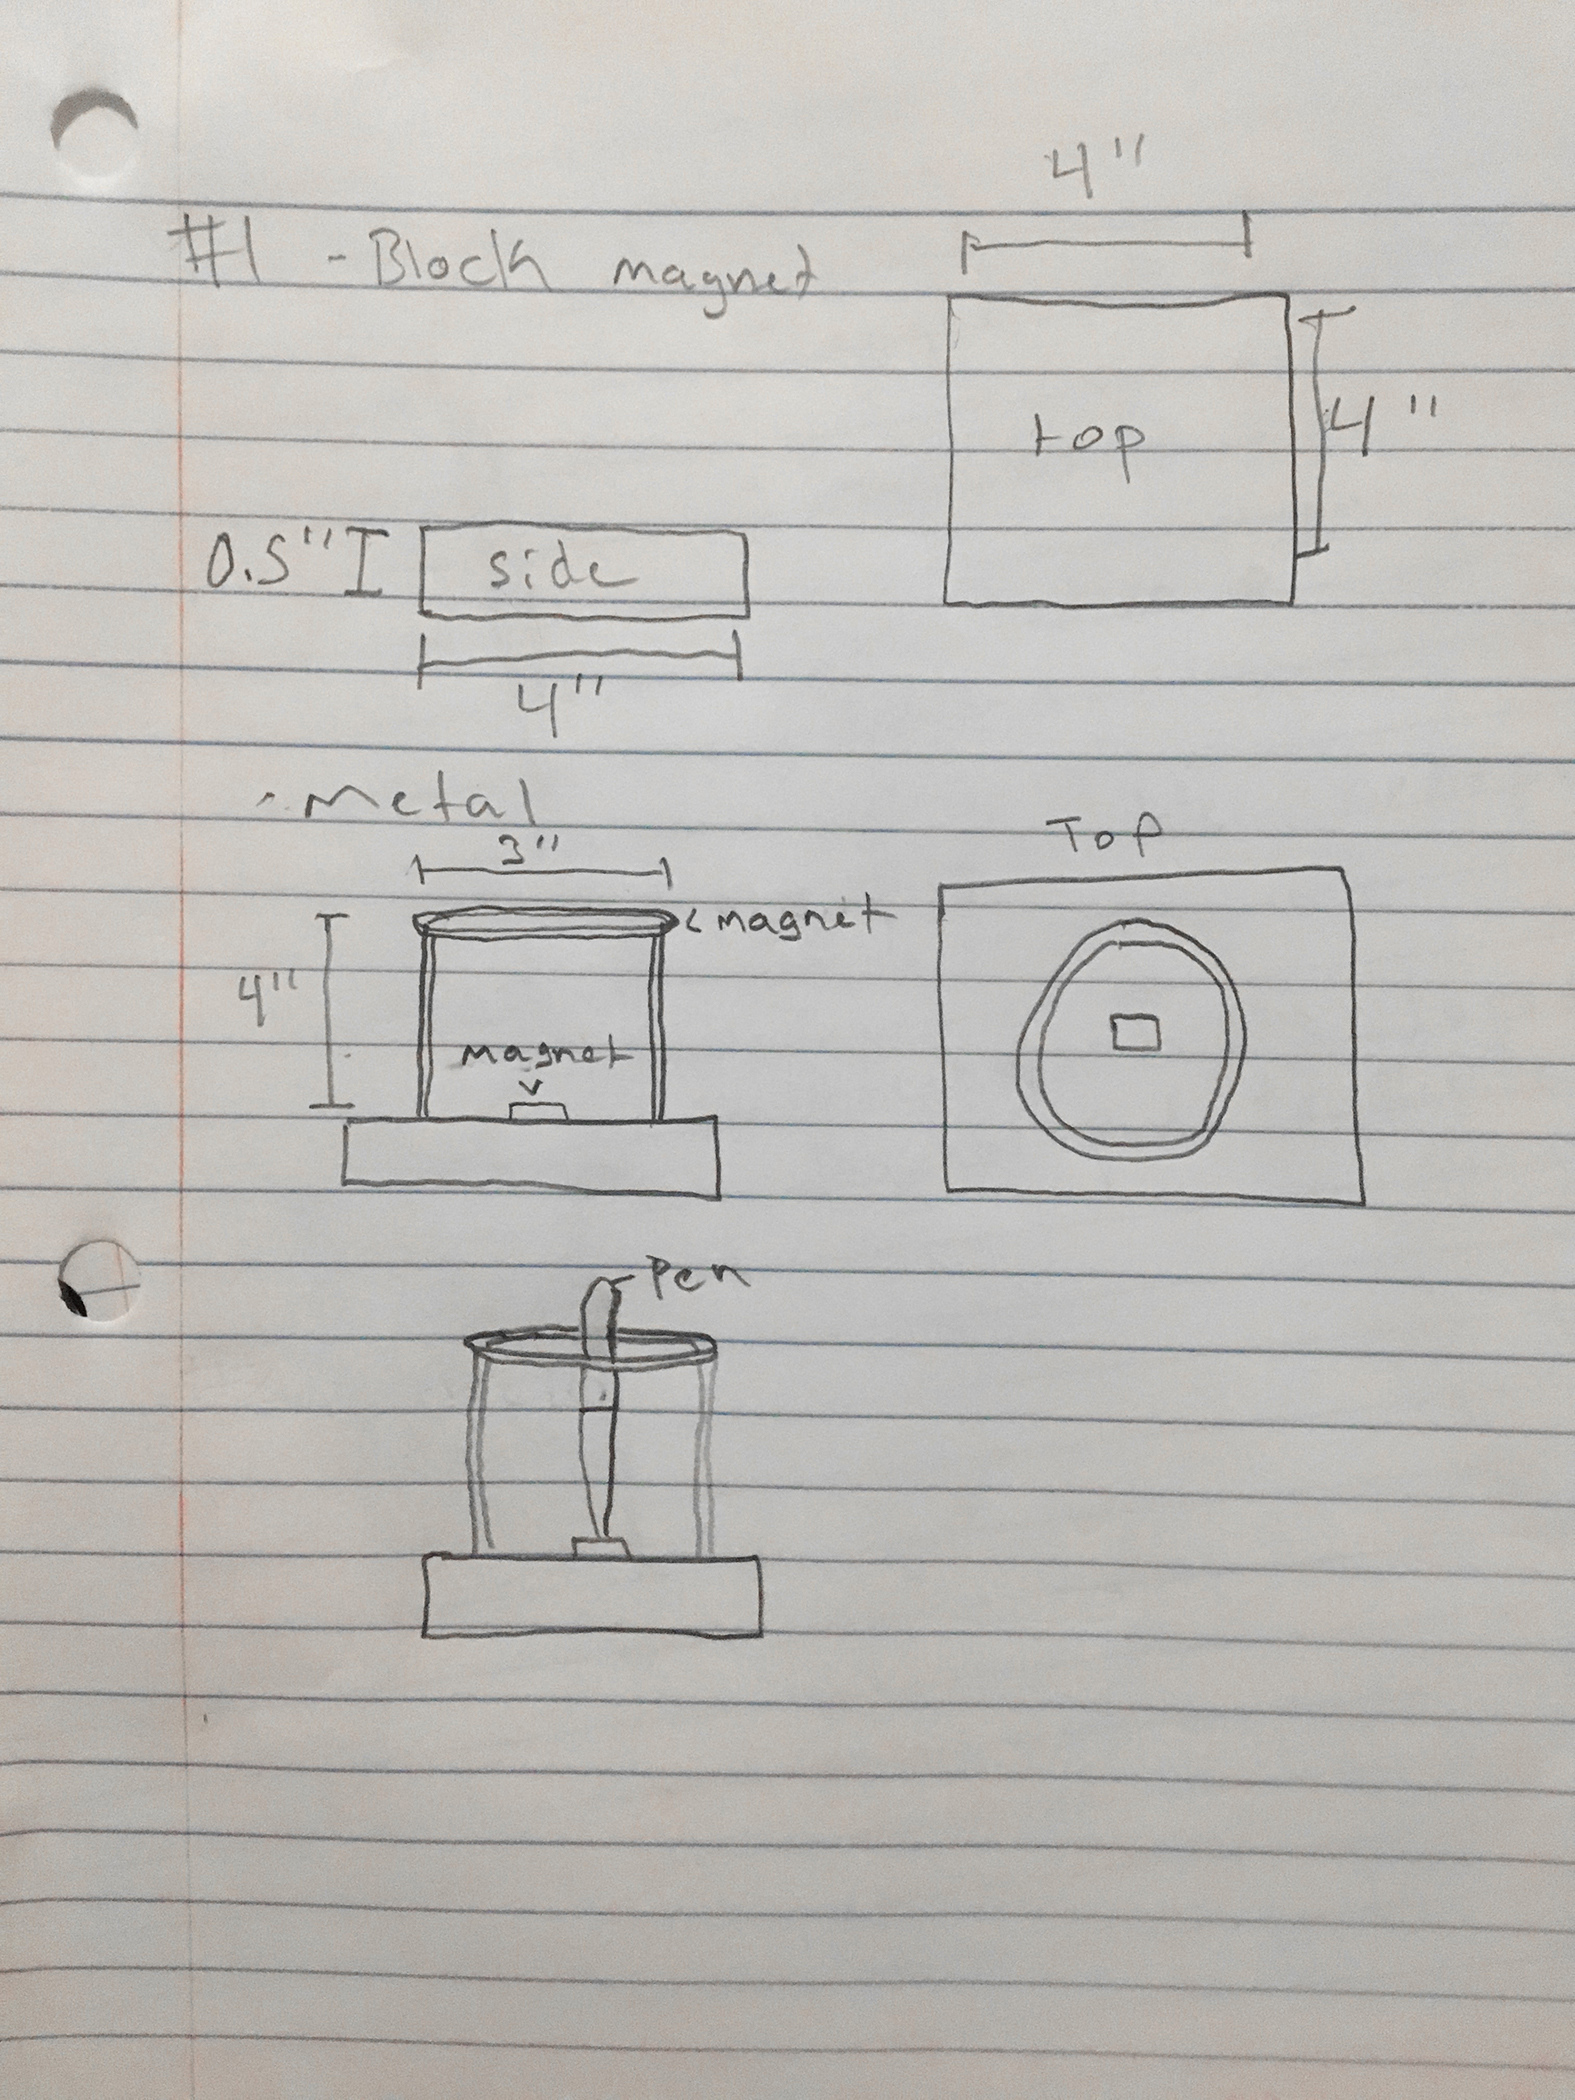 4"
#1 - Block magnet
top
4"
0.5"
side
4"
- Metal
3"
Top
magnet
4"
magnet
Pen